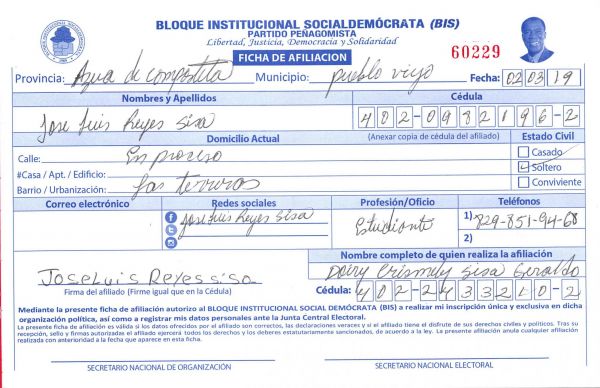 BLOQUE INSTITUCIONAL SOCIALDEMÓCRATA (BIS)
PARTIDO PEÑAGOMISTA
Libertad, Justicia, Democracia y Solidaridad
FICHA DE AFILIACION
60229
Provincia: Azua de compostela Municipio: pueblo viejo Fecha: 02 03 19
Nombres y Apellidos Cédula
Jose Luis Reyes Sisa 402-0982196-2
Domicilio Actual (Anexar copia de cédula del afiliado) Estado Civil
Calle: En proceso Casado
#Casa / Apt. / Edificio: Soltero
Barrio / Urbanización: Las terreras Conviviente
Correo electrónico Redes sociales Profesión/Oficio Teléfonos
Jose Luis Reyes Sisa Estudiante 1) 829-851-94-68
2)
Nombre completo de quien realiza la afiliación
Joseluis Reyes sisa Doiry Crismely Sisa Geraldo
Firma del afiliado (Firme igual que en la Cédula) Cédula: 402-2433210-2
Mediante la presente ficha de afiliación autorizo al BLOQUE INSTITUCIONAL SOCIAL DEMÓCRATA (BIS) a realizar mi inscripción única y exclusiva en dicha
organización política, así como a registrar mis datos personales ante la Junta Central Electoral.
La presente ficha de afiliación es válida si los datos ofrecidos por el afiliado son correctos, las declaraciones veraces y si el afiliado tiene el disfrute de sus derechos civiles y políticos. Tras su
recepción, sello y firmas autorizadas el afiliado ejercerá todos los derechos y los deberes estatutariamente sancionados, de acuerdo a la ley. La presente afiliación anula cualquier afiliación
realizada con anterioridad a la fecha que aparece en esta ficha.
SECRETARIO NACIONAL DE ORGANIZACIÓN SECRETARIO NACIONAL ELECTORAL